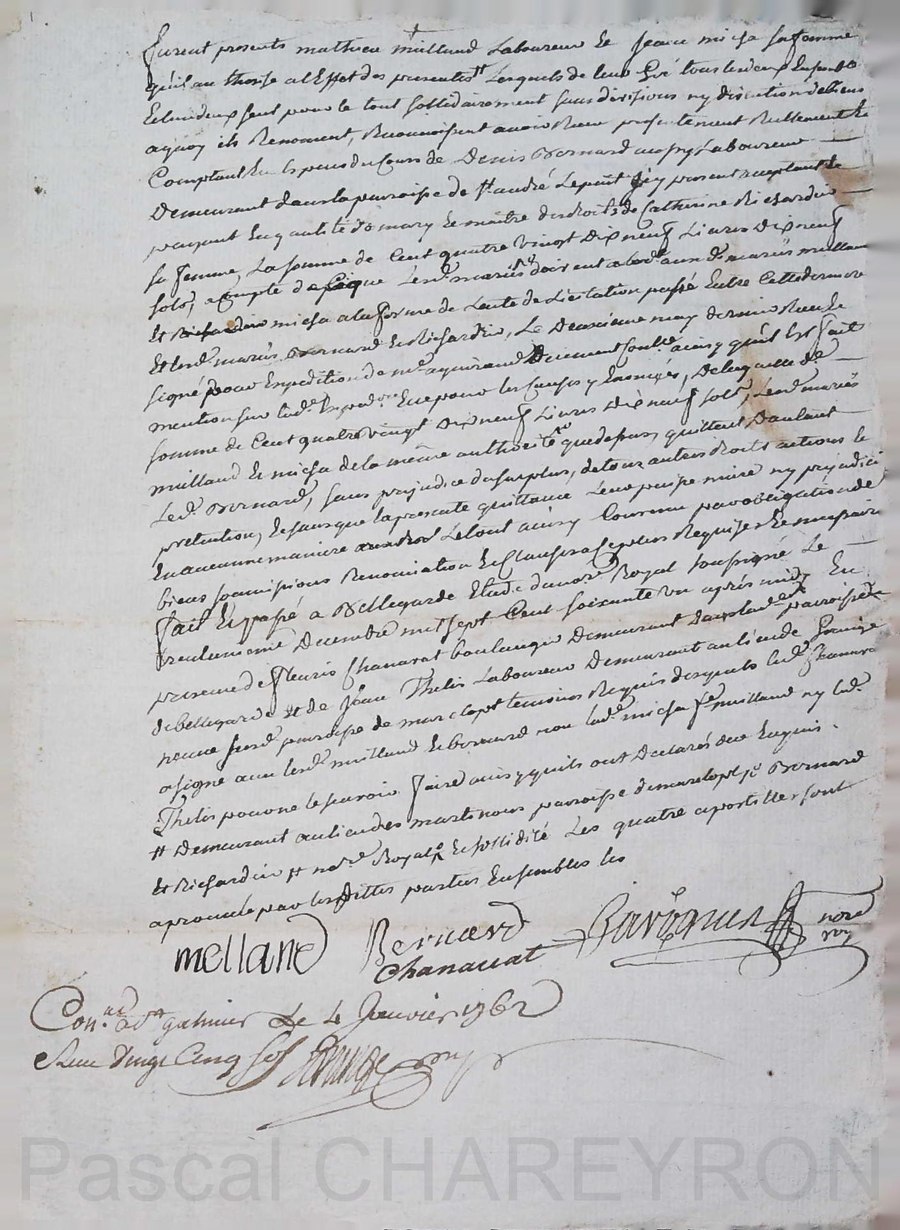 furent presents mathieu milland Laboureur Et jeanne micha sa femme
quil authorise a L'Effet des presentes # Lesquels de leur gré tous les deux Ensemble
Et lun deux seul pour le tout sollidairement sans division ny discution de biens
aquoy ils Renoncent, Reconnoissent avoir Receu presentement Reellement Et
Comptant En Especes du Cours de Denis Bernard aussy Laboureur
Demeurant dans la paroisse de St andré Le puit Jcy present acceptant Et
payant En qualité de mary Et maitre des droits de Catherine Richardier
sa femme, La somme de Cent quatre vingt Dix neuf Livres Dix neuf
sols, a Compte de ce que Lesd. mariés doivent auxd. mariés milland
Et micha a la forme de L'acte de passé Entre
Et lesd. mariés Bernard Et Richardier, Le Deuxieme may dernier Receu Et
signé pour Expedition de me aguiraud ainsy qu'il Est fait
mention sur lad. Expedon Et pour les Causes y Enoncées, De laquelle de
somme de Cent quatre vingt Dix neuf Livres Dix neuf sols, Lesd. mariés
milland Et micha de la même authorité que dessus, quittent D'autant
Led. Bernard, sans prejudice du surplus, de tous autres droits actions Et
pretention, Et sans que la presente quittance Leur puisse nuire ny prejudicier
En aucunne maniere Le tout ainsy Convenu par obligation de
biens soumissions Renonciation Et Clauses a ce plus Requises Et necessaires
fait Et passé a Bellegarde Etude du nore Royal soussigné Le
trente unieme Decembre mil sept Cent soixante un après midy En
presence de fleury Chanavat boulanger Demeurant paroisse
de bellegarde Et de Jean Thelis Laboureur Demeurant au lieu de Grange
neuve susd. paroisse de marclopt temoins Requis desquels led. Chanavat
a signé avec lesd. milland Et bernard non lad. micha fe milland ny led.
Thelis pour ne le scavoir faire ainsy quils ont Declarés de ce Enquis.
# Demeurant au lieu des martinons paroisse de marclopt # Bernard
Et Richardier # nore Royal # Et sollidité Les quatre apostilles sont
aprouvée par les dittes parties Ensembles les
melland Bernard
Chanavat nore
roy
Con.lé a St galmier Le 4 Janvier 1762
Receu Vingt Cinq sols
Pascal CHAREYRON